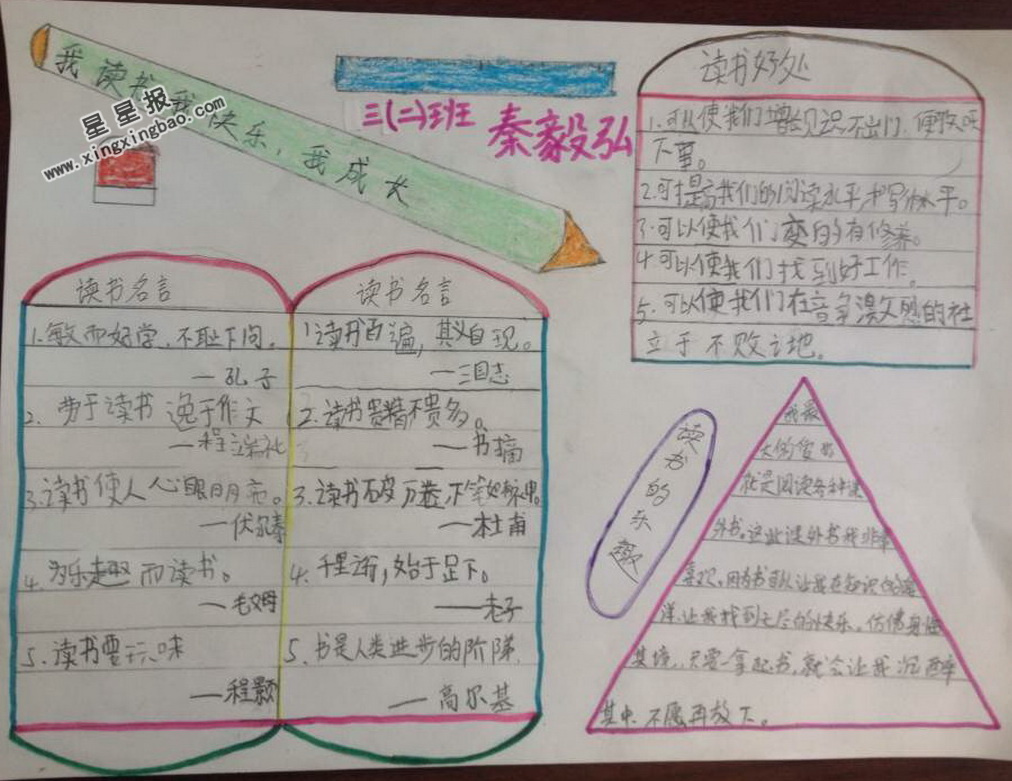 我读书，我快乐，我成长
星星报
www.xingxingbao.com
三(二)班 秦毅弘
读书名言
1.敏而好学，不耻下问。
—孔子
2. 劳于读书 逸于作文
—程端礼
3.读书使人心眼明亮。
—伏尔泰
4. 为乐趣而读书。
—毛姆
5. 读书要玩味
—程颢
读书名言
1读书百遍，其义自现。
—三国志
2.读书贵精不贵多。
—书摘
3.读书破万卷，下笔如有神。
—杜甫
4. 千里之行，始于足下。
—老子
5. 书是人类进步的阶梯.
—高尔基
读书好处
1.可以使我们增长见识，不出门，便知天
下事。
2.可提高我们的阅读水平和写作水平。
3.可以使我们变的有修养。
4.可以使我们找到好工作。
5.可以使我们在竞争激烈的社
立于不败之地。
读书的乐趣
我最
大的
就是阅读各种课
外书。这些课外书我非常
喜欢，因为书可以让我在知识的海
洋，让我找到无尽的快乐。仿佛身临
其境，只要一拿起书，就会让我沉醉
其中，不愿再放下。